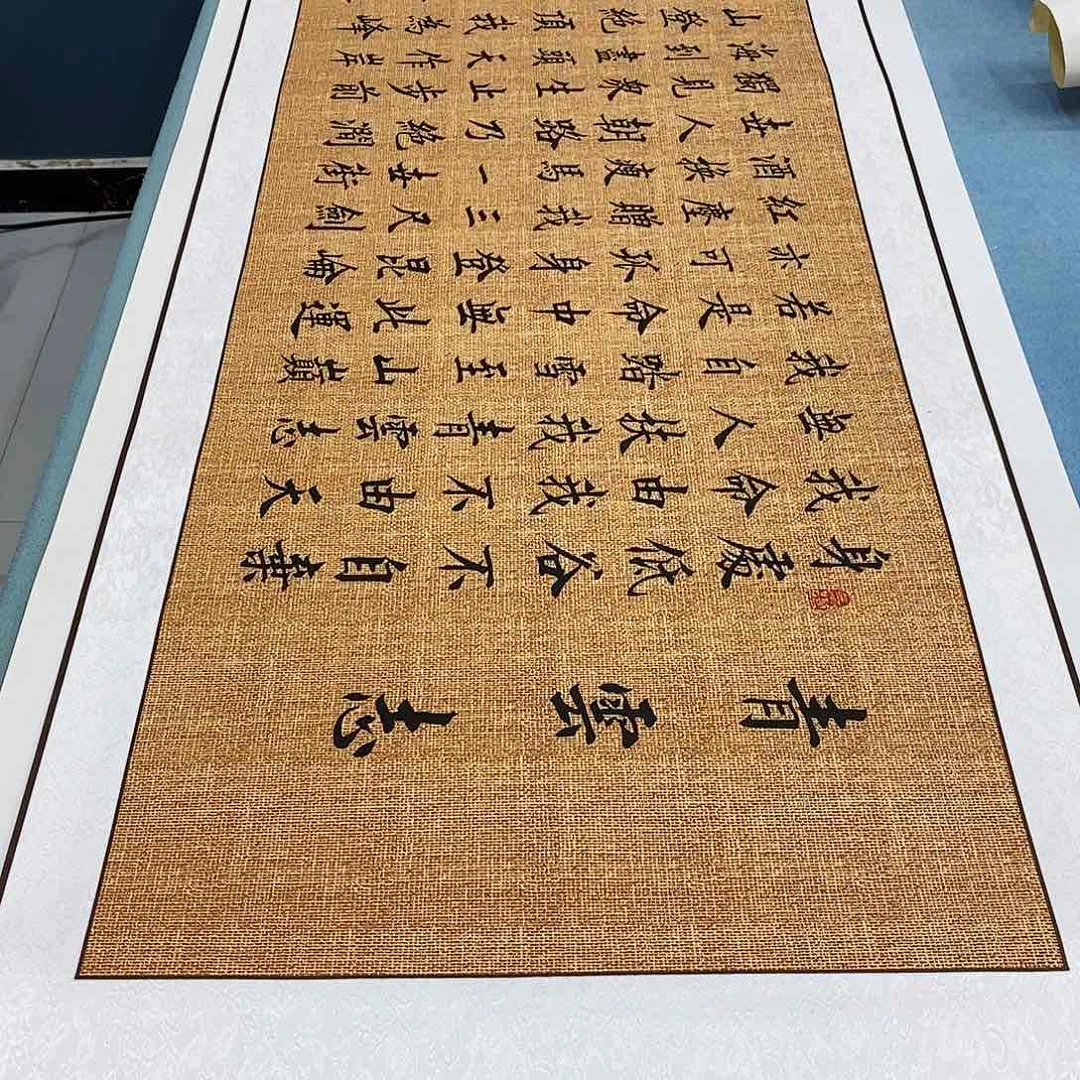 青雲志
身處低谷不自棄
我命由我不由天
無人扶我青雲志
我自踏雪至山巔
若是命中無此運
亦可孤身登昆崘
紅塵贈我三尺劍
酒換瘦馬一世街
世人朝路乃絕澗
獨見眾生止步前
海到盡頭天作岸
山登絕頂我為峰